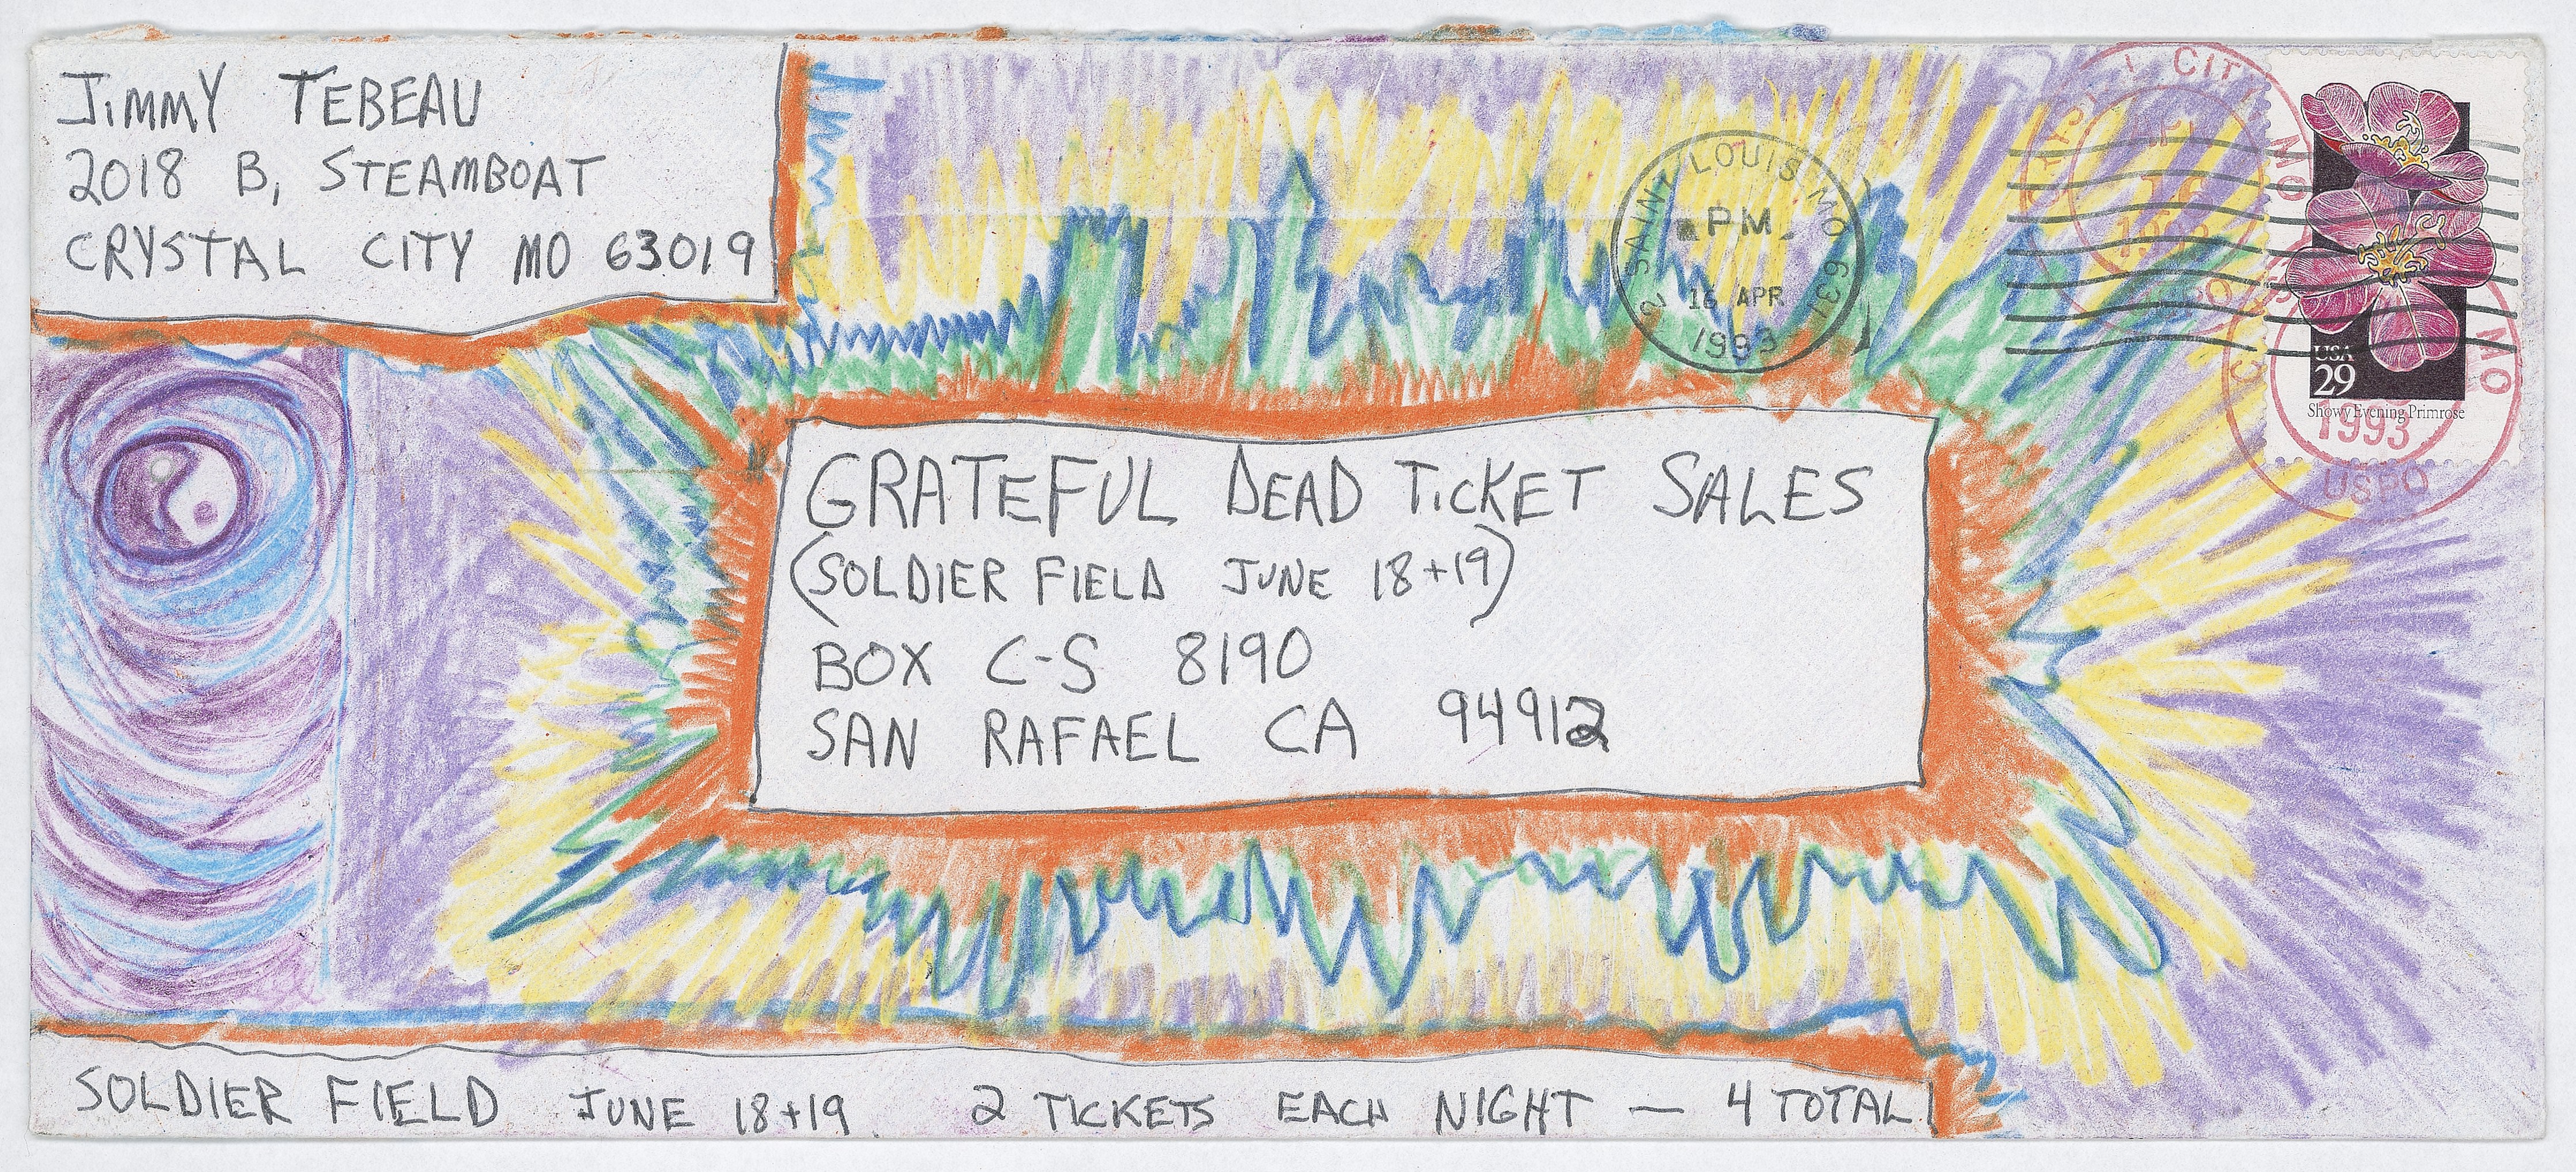 JIMMY TEBEAU
2018 B, STEAMBOAT
CRYSTAL CITY MO 63019
SAINT LOUIS MO 631
PM
16 APR
1993
CITY MO
USA
29
Showy Evening Primrose
MO
1993
USPO
GRATEFUL DEAD TICKET SALES
(SOLDIER FIELD JUNE 18+19)
BOX C-S 8190
SAN RAFAEL CA 94912
SOLDIER FIELD JUNE 18+19 2 TICKETS EACH NIGHT — 4 TOTAL